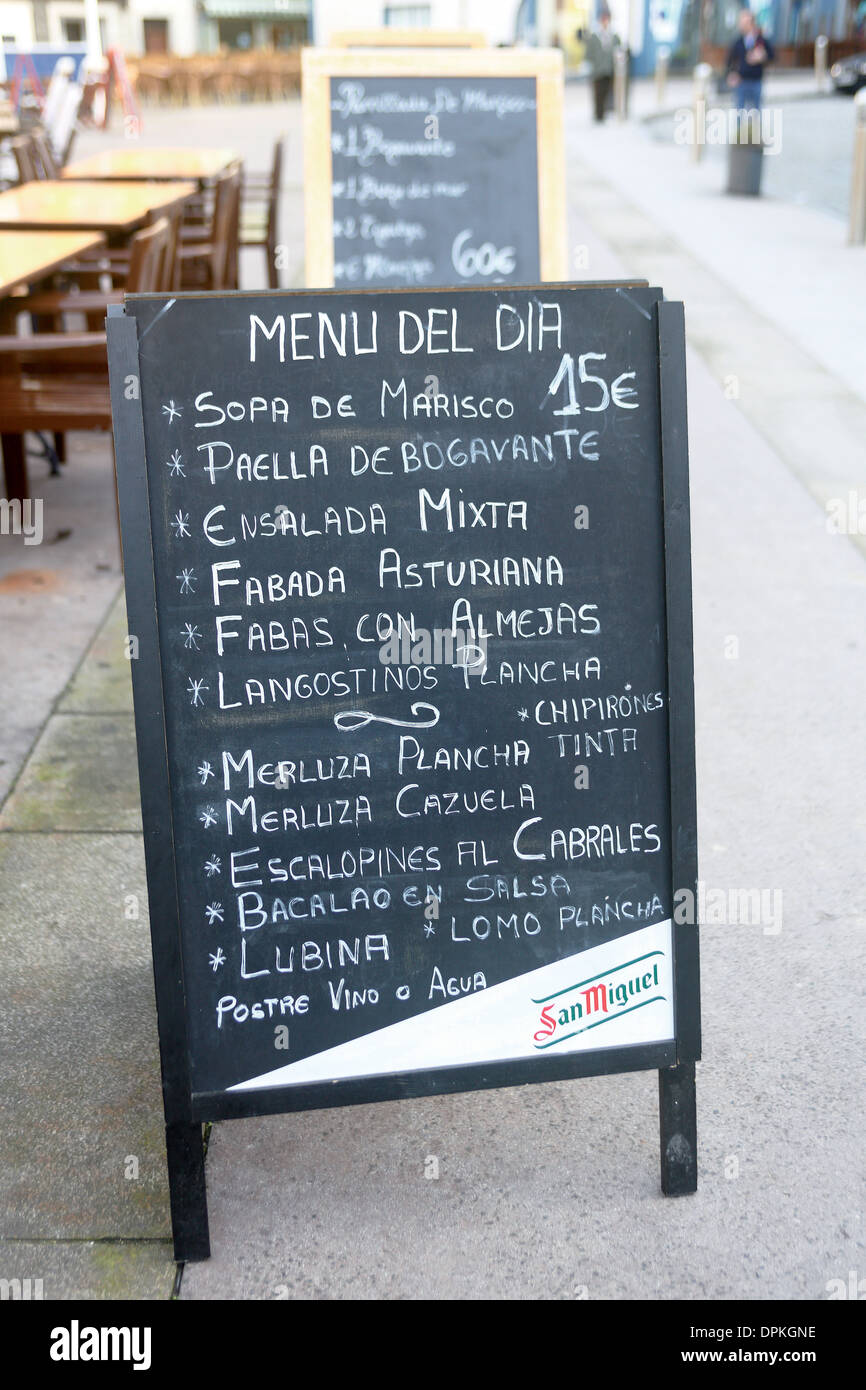 Parrillada De Marisco
* 1 Bogavante
60€
MENU DEL DIA
* SOPA DE MARISCO 15€
* PAELLA DE BOGAVANTE
* ENSALADA MIXTA
* FABADA ASTURIANA
* FABAS CON ALMEJAS
* LANGOSTINOS PLANCHA
* CHIPIRONES
TINTA
* MERLUZA PLANCHA
* MERLUZA CAZUELA
* ESCALOPINES AL CABRALES
* BACALAO EN SALSA
* LOMO PLANCHA
* LUBINA
POSTRE VINO O AGUA
San Miguel
alamy
Image ID: DPKGNE
www.alamy.com